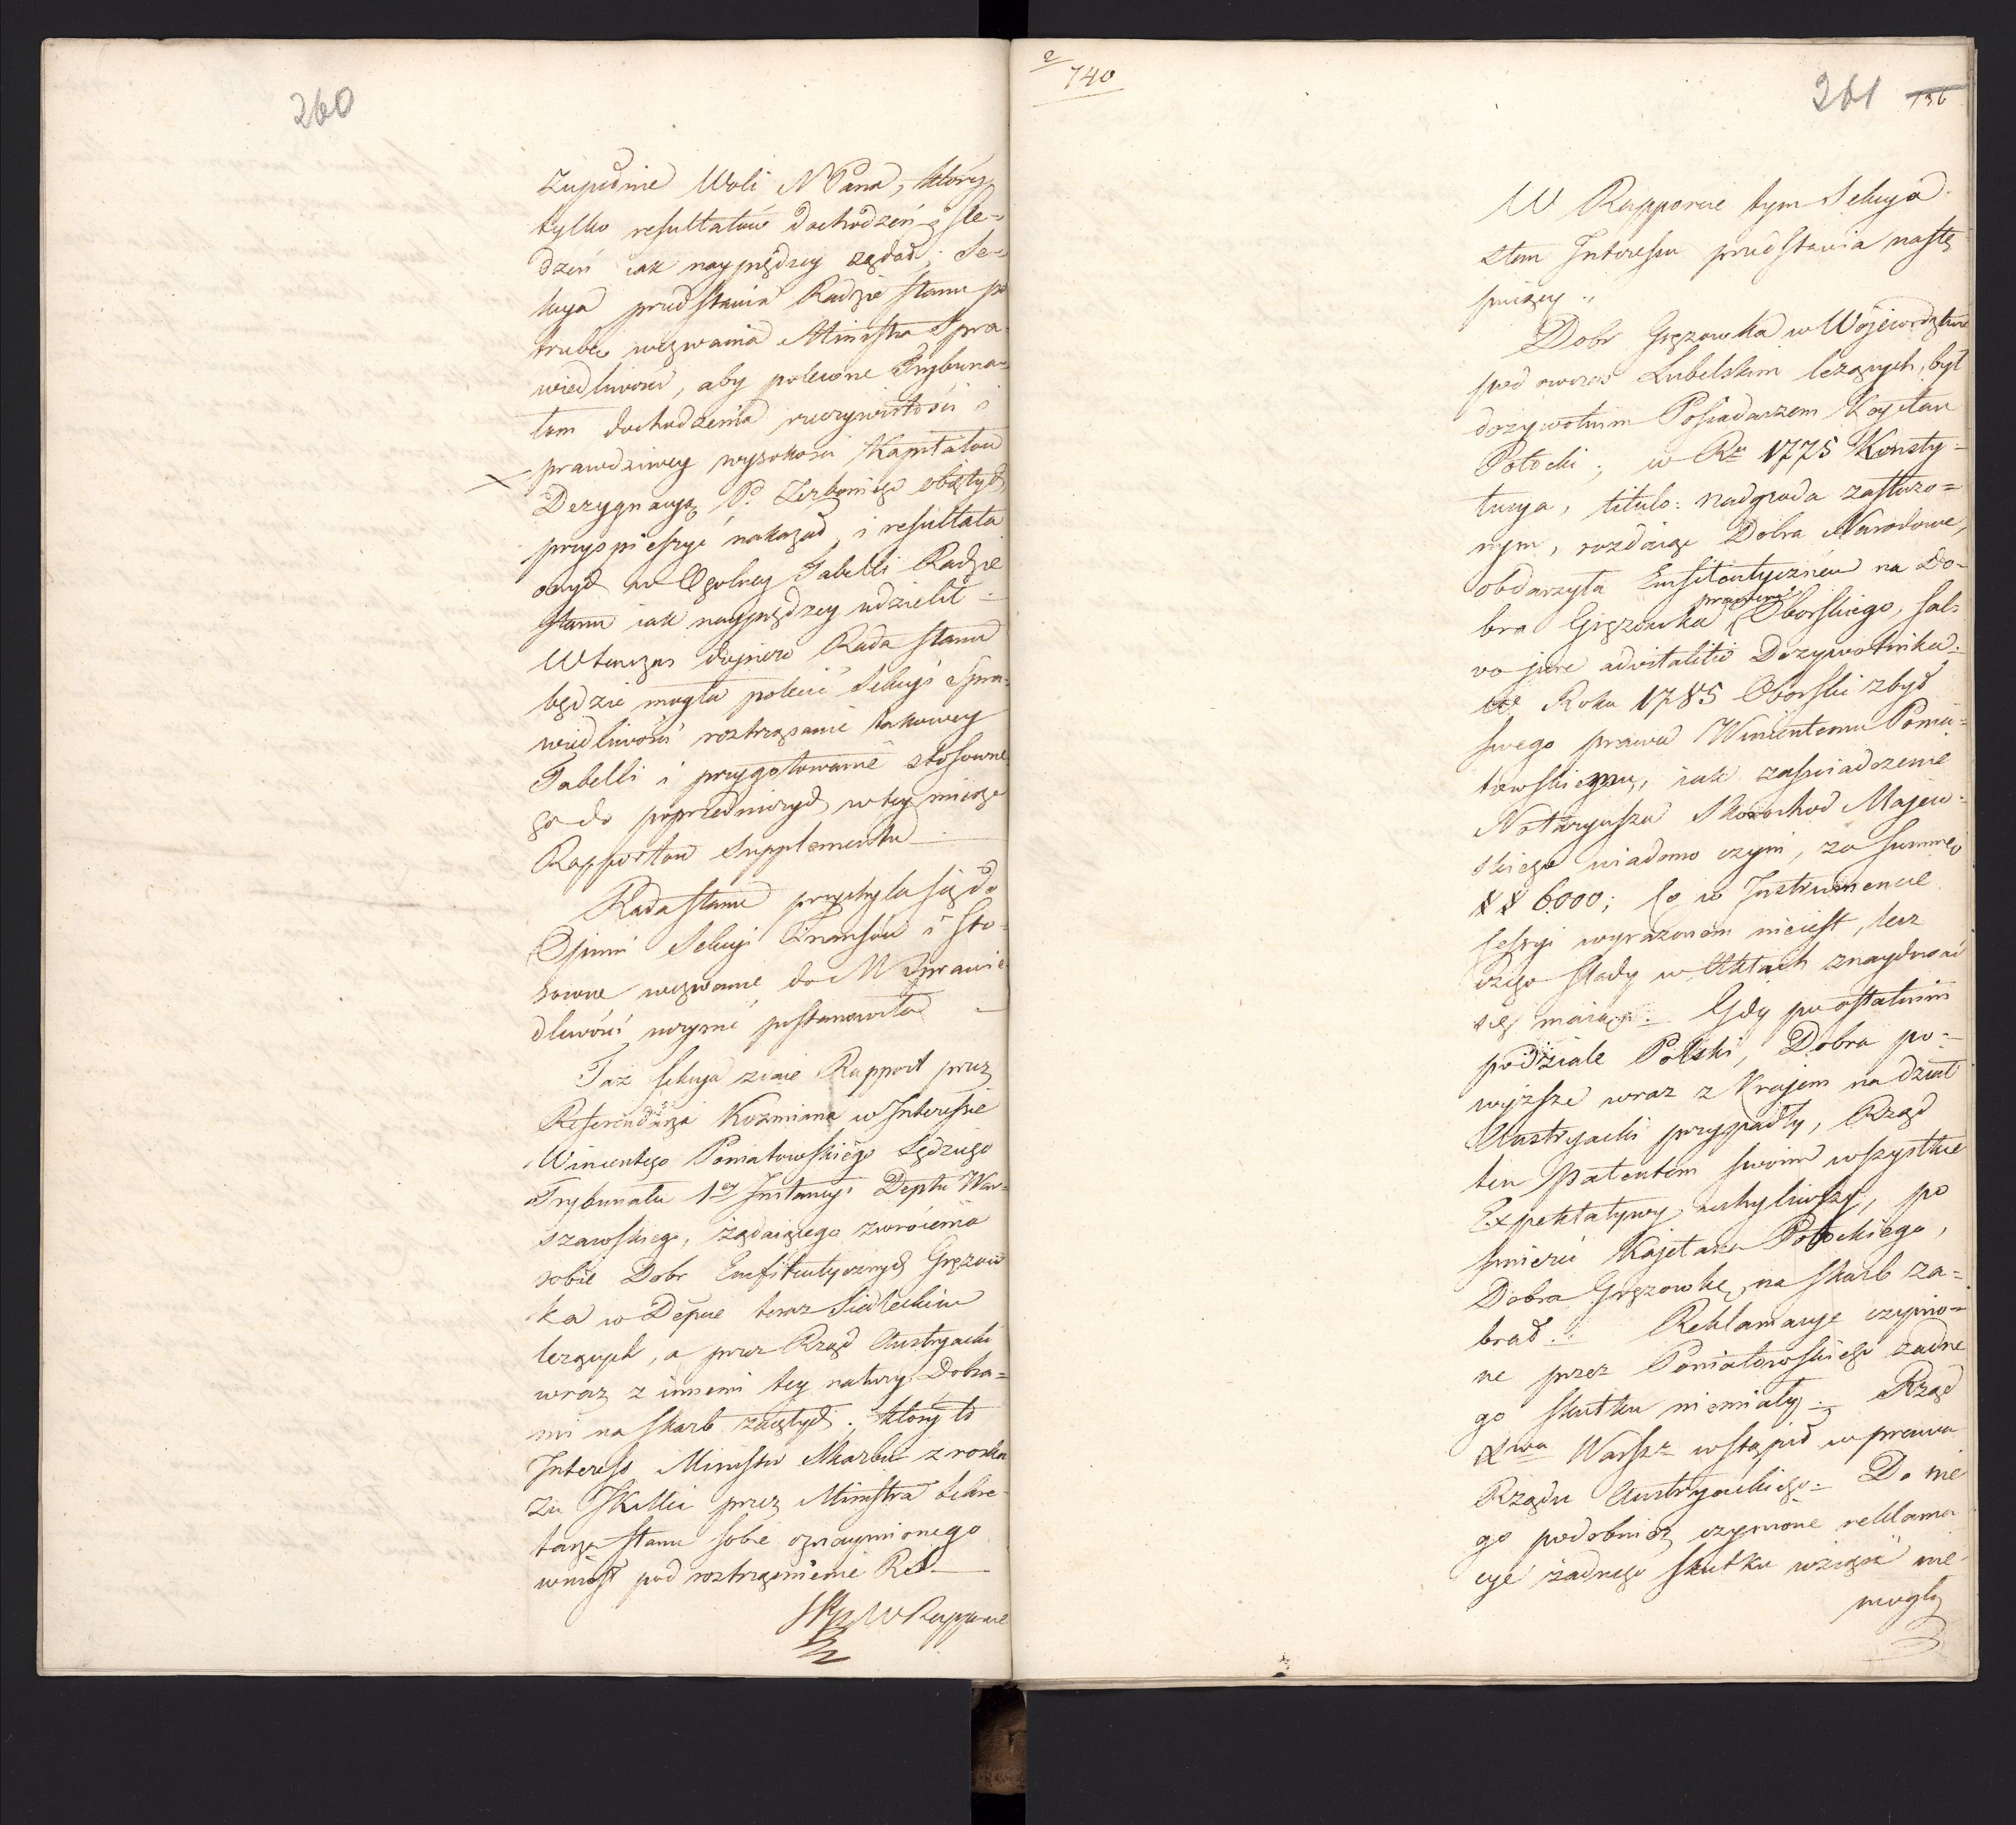 260
zupełnie Woli N Pana, który
tylko resultatów dochodzeń i śle-
dzeń iak nayprędzey żądał; Se-
kcya przedstawia Radzie Stanu po
trzebę wezwania Ministra Spra-
wiedliwości, aby polecone Trybuna-
łom dochodzenia rzeczywistości i
prawdziwey wysokości Kapitałów
Dezygnacyą Po Zerboniego obiętych
przyspieszyć nakazał, i resultata
onych w Ogolney Tabelli Radzie
Stanu iak nayprędzey udzielił.
Wtenczas dopiero Rada Stanu
będzie mogła polecić Sekcyi Spra-
wiedliwości roztrząsanie takowey
Tabelli i przygotowanie stosowne
go do poprzedniczych w tey mierze
Rapportów Supplementu
Rada Stanu przychyla się do
Opinii Sekcyi Finansów i sto-
sowne wezwanie do M Sprawie
dliwości uczynić postanowiła
Taż Sekcya zdaie Rapport przez
Referendarza Kozmiana w Interessie
Wincentego Poniatowskiego Sędziego
Trybunału 1ey Instancyi Deptu War-
szawskiego, żądaiącego zwrócenia
sobie Dobr Emfiteutycznych Gręzow
ka w Depcie teraz Siedleckim
leżących, a przez Rząd Austryacki
wraz z innemi tey natury Dobra-
mi na Skarb zaiętych; który to
Interess Minister Skarbu z rozka
zu JKMci przez Ministra Sekre-
tarza Stanu sobie oznaymionego
wniósł pod roztrząśnienie RS.
W Rapporcie
2
740
261 136
W Rapporcie tym Sekcya
stan Interessu przedstawia nastę
puiący.
Dobr Gręzowka w Województwie
pod owczas Lubelskim leżących, był
dożywotnim Possiadaczem Kajetan
Potocki; w Rku 1775 Konsty-
tucya, titulo: nadgroda zasłużo-
nym, rozdaiąc Dobra Narodowe,
obdarzyła Emfiteutycznem na Do-
prawem
bra Gręzowka Oborskiego, sal-
vo jure advitalitio Dożywotnika.
W Roku 1785 Oborski zbył
swego prawa Wincentemu Ponia-
towskiemu, iak zaświadczenie
Notaryusza Skorochod Majew-
skiego wiadomo czyni, za summę
## 6000; co w Instrumencie
Cessyi wyrażonem nieiest, lecz
czego slady w Aktach znaydować
się maią. Gdy po ostatnim
podziale Polski, Dobra po-
wyższe wraz z Krajem na dział
Austryacki przypadły, Rząd
ten Patentem swoim wszystkie
Expektatywy uchyliwszy, po
śmierci Kajetana Potockiego,
Dobra Gręzowkę na Skarb za-
brał. Reklamacye czynio-
ne przez Poniatowskiego żadne
go skutku niemiały. Rząd
Xwa Warszo wstąpił w prawa
Rządu Austryackiego. Do nie
go podobnież czynione reklama
cye żadnego skutku wziąść nie
mogły